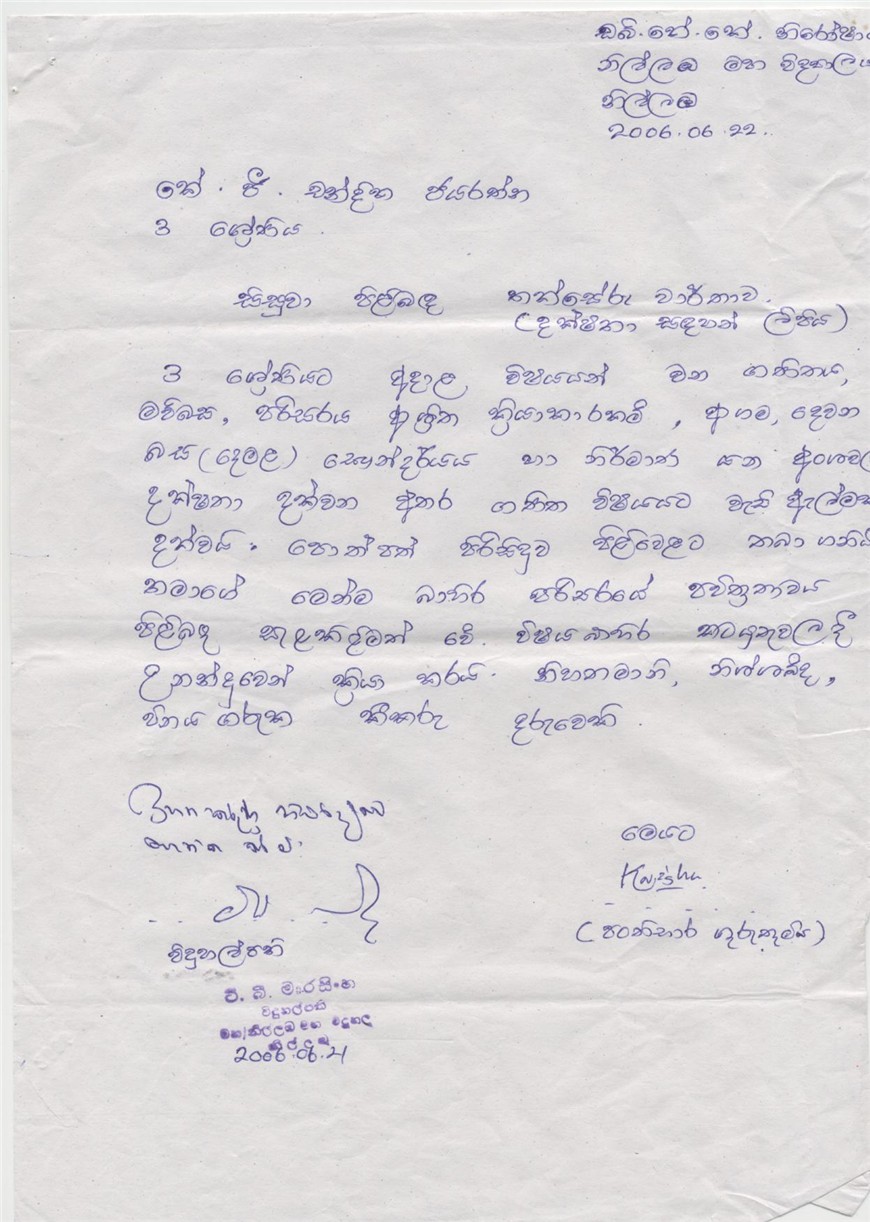 ඩබ්.කේ.කේ. නිරෝෂා
නිල්ලඹ මහ විද්‍යාලය
නිල්ලඹ
2006.06.22.
කේ. ජී. චන්දික ජයරත්න
3 ශ්‍රේණිය.
සිසුවා පිළිබඳ තක්සේරු වාර්තාව.
(දක්ෂතා සඳහන් ලිපිය)
3 ශ්‍රේණියට අදාළ විෂයයන් වන ගණිතය,
මව්බස, පරිසරය ආශ්‍රිත ක්‍රියාකාරකම්, ආගම, දෙවන
බස (දෙමළ) සෞන්දර්යය හා නිර්මාණ යන අංශවල
දක්ෂතා දක්වන අතර ගණිත විෂයයට වැඩි ඇල්මක්
දක්වයි. පොත්පත් පිරිසිදුව පිළිවෙළට තබා ගනියි
තමාගේ මෙන්ම බාහිර පරිසරයේ පවිත්‍රතාවය
පිළිබඳ සැළකිළිමත් වේ. විෂය බාහිර කටයුතුවල දී
උනන්දුවෙන් ක්‍රියා කරයි. නිහතමානි, නිශ්ශබ්ද,
විනය ගරුක කීකරු දරුවෙකි.
මෙයට
(පංතිභාර ගුරුතුමිය)
විදුහල්පති
ටී. බී. මාරසිංහ
විදුහල්පති
මහ/නිල්ලඹ මහ විදුහල
නිල්ලඹ
2006.06.21